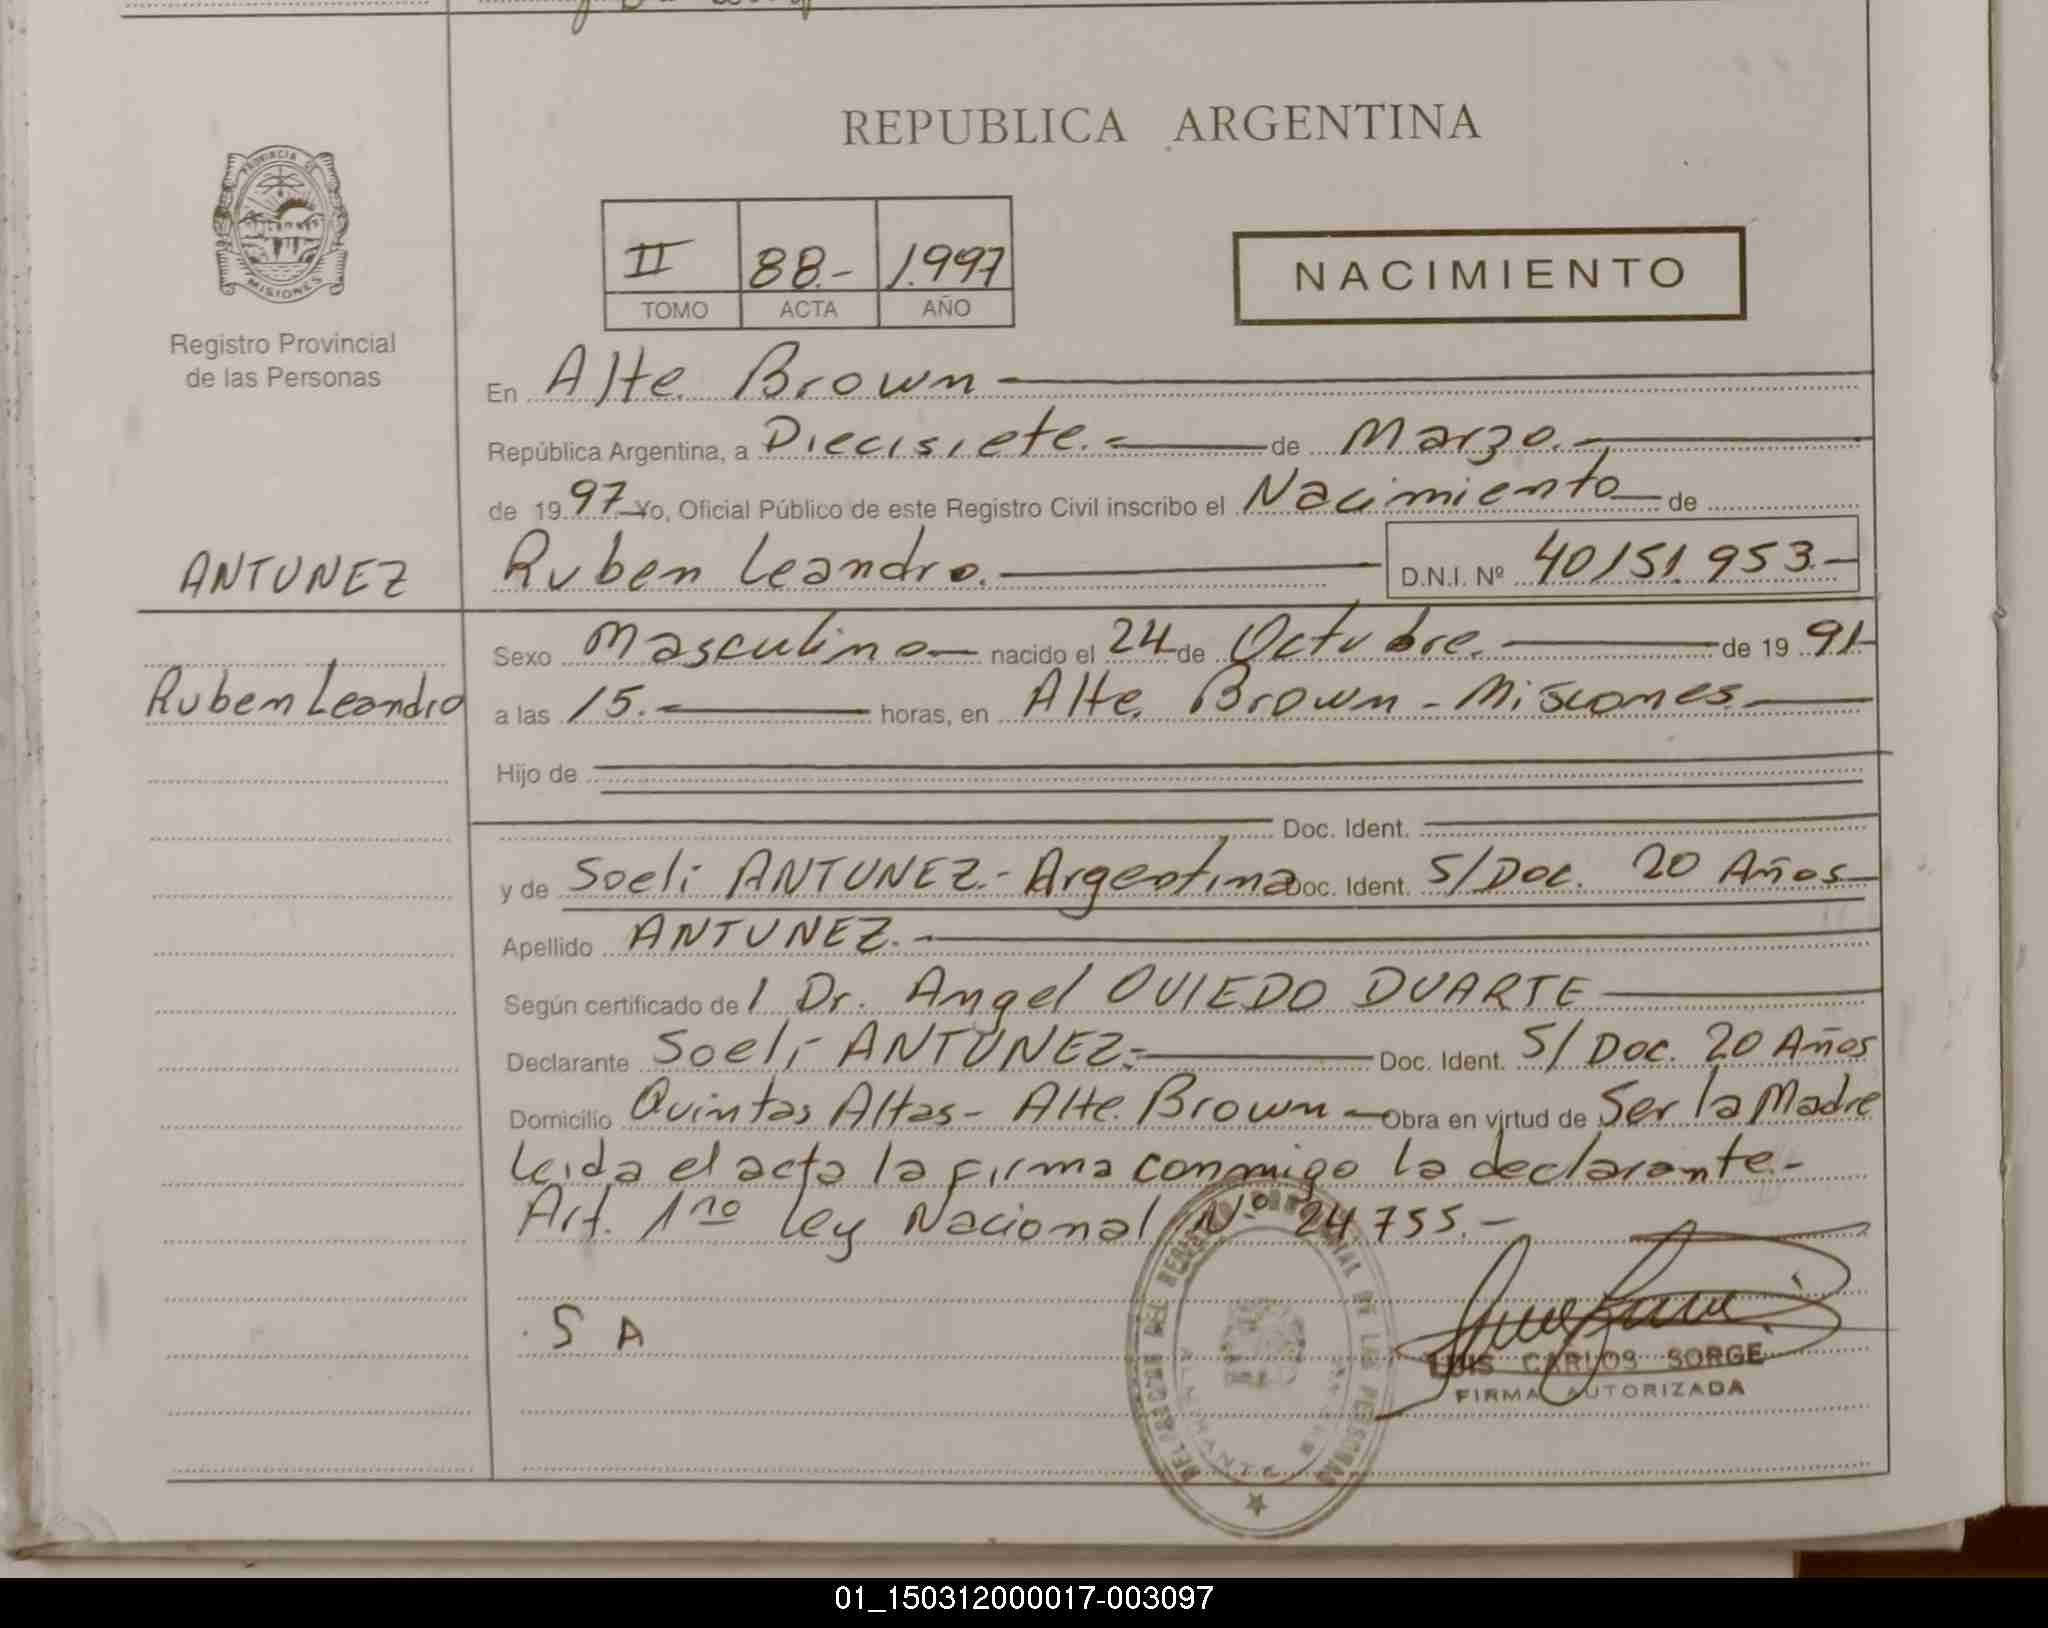 REPUBLICA ARGENTINA
PROVINCIA DE
MISIONES
Registro Provincial
de las Personas
II 88.- 1.997
TOMO ACTA AÑO
NACIMIENTO
En Alte. Brown
República Argentina, a Diecisiete.- de Marzo.-
de 19 97 Yo, Oficial Público de este Registro Civil inscribo el Nacimiento de
ANTUNEZ
Ruben Leandro
Ruben Leandro. D.N.I. Nº 40151.953.-
Sexo Masculino nacido el 24 de Octubre. de 19 91
a las 15.- horas, en Alte. Brown - Misiones.
Hijo de
Doc. Ident.
y de Soeli ANTUNEZ.- Argentina Doc. Ident. S/Doc. 20 Años
Apellido ANTUNEZ.-
Según certificado de l Dr. Angel OVIEDO DUARTE
Declarante Soeli ANTUNEZ.- Doc. Ident. S/Doc. 20 Años
Domicilio Quintas Altas - Alte. Brown - Obra en virtud de Ser la Madre
Leida el acta la firma conmigo la declarante.-
Art. 1ro Ley Nacional Nº 24755.-
S A
LUIS CARLOS SORGE
FIRMA AUTORIZADA
01_150312000017-003097